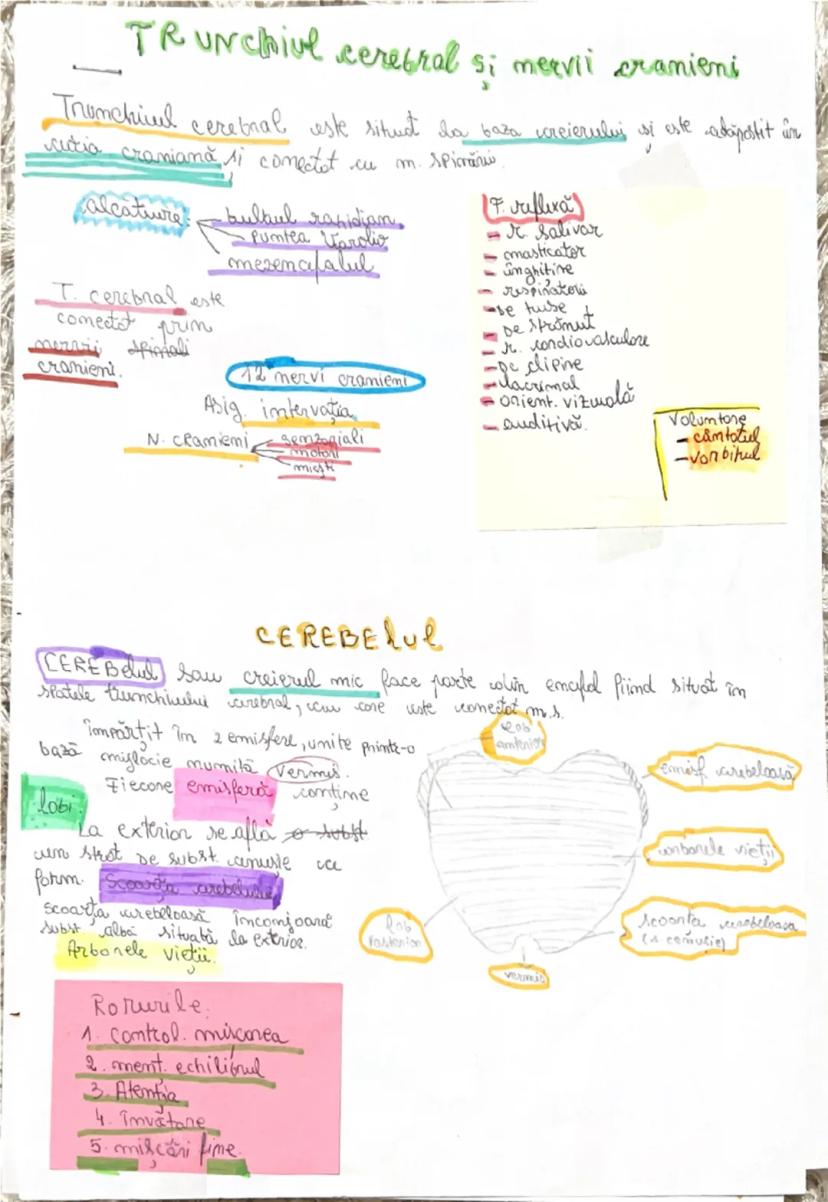 TRUNChiul cerebral și nervii cranieni
Trunchiul cerebral este situat la baza creierului și este adăpostit în
cutia craniană și conectat cu m. spinării.
alcătuire:
bulbul rahidian
Puntea Varolio
mezencefalul
T. cerebral este
conectat prin
nervii spinali
cranieni.
12 nervi cranieni
Asig. intervația
N. cranieni
senzoriali
motori
micști
F. reflexă
- R. salivar
- masticator
- înghitire
- respiratorii
- de tuse
- De strănut
- R. cardiovasculare
- de clipire
- lacrimal
- orient. vizuală
- auditivă.
Voluntare
- cântatul
- vorbitul
CEREBELul
CEREBelul sau creierul mic face parte din encefal fiind situat în
spatele trunchiului cerebral, cu care este conectat m.s.
Împărțit în 2 emisfere, unite printr-o
bază mijlocie numită Vermis.
Fiecare emisferă conține
lobi.
La exterior se află o subst
un strat de subst. cenușie ce
form. Scoarța cerebeloasă
scoarța cerebeloasă înconjoară
subst. albă situată la exterior.
Arborele vieții.
lob anterior
emisf cerebeloasă
arborele vieții
scoarta cerebeloasa
(s cenusie)
lob Posterior
vermis
Rolurile:
1. control. mișcarea
2. ment. echilibrul
3. Atenția
4. învățare
5. mișcări fine.